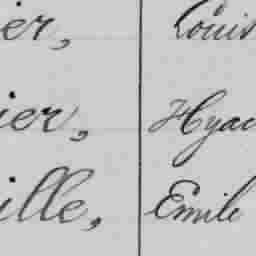 ier, Louis
ier, Hyac
ille, Emile